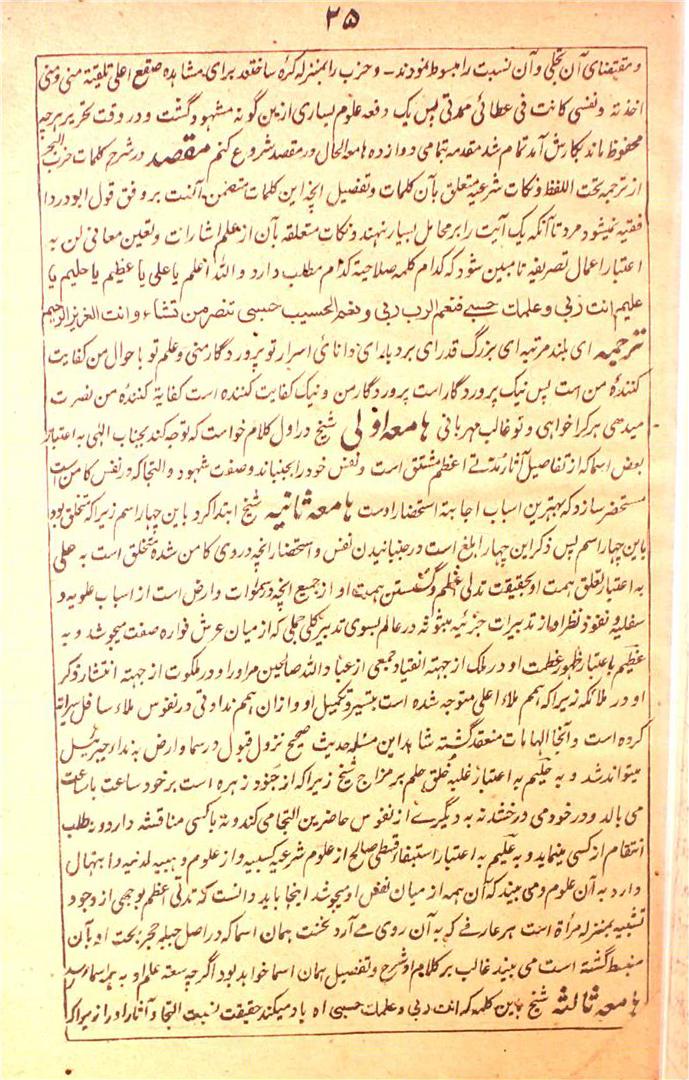 ۳۵
و مقتضای آن تجلی و آن نسبت را مبسوط نمودند - و حزب را بمنزله کره ساختند برای مشاهده صقع اعلی تلقیته منی و منی
اخذته و نفسی کانت فی عطائی ممدتی پس یک دفعه علوم بسیاری ازین گونه مشهود گشت و در وقت تحریر هرچه
محفوظ ماند بکارش آمد تمام شد مقدمه بتمامی دوازده هامعه الحال در مقصد شروع کنم مقصد در شرح کلمات حزب البحر
از ترجمه تحت اللفظ و نکات شرعیه متعلق بآن کلمات و تفصیل انچه این کلمات متضمن آنست بر وفق قول ابودردا
فقیه نمیشود مرد تا آنکه یک آیت را بر محامل بسیار نهند و نکات متعلقه بآن از علم اشارات و تعین معانی لن به
اعتبار اعمال تصریفیه تا مبین شود که کدام کلمه صلاحیة کدام مطلب دارد و الله اعلم یا علی یا عظیم یا حلیم یا
علیم انت ربی و علمک حسبی فنعم الرب ربی و نعم الحسیب حسبی تنصر من تشاء و انت العزیز الرحیم
ترجمه ای بلند مرتبه ای بزرگ قدر ای بردبار ای دانای اسرار تو پروردگار منی و علم تو باحوال من کفایت
کنندهٔ من است پس نیک پروردگار است پروردگار من و نیک کفایت کننده است کفایة کنندهٔ من نصرت
میدهی هر کرا خواهی و تو غالب مهربانی هامعه اولی شیخ در اول کلام خواست که توجه کند بجناب الهی به اعتبار
بعض اسما که از تفاصیل آثار تدلی اعظم مشتق است و نفس خود را بجنباند و صفت شهود و التجا که در نفس کامن است
مستحضر سازد که بهترین اسباب اجابة استحضار اوست هامعه ثانیه شیخ ابتدا کرد باین چهار اسم زیرا که متخلق بود
باین چهار اسم پس ذکر این چهار ابلغ است در جنبانیدن نفس و استحضار انچه در وی کامن شده متخلق است به علی
به اعتبار تعلق همت او بحقیقت تدلی اعظم و گسستن همت او از جمیع انچه در سموات و ارض است از اسباب علویه و
سفلیه و نفوذ نظر او از تدبیرات جزئیه مبثوثه در عالم بسوی تدبیر کلی جملی که از میان عرش فواره صفت میجوشد و به
عظیم باعتبار ظهور عظمت او در ملک از جهته انقیاد جمعی از عباد الله صالحین مر او را و در ملکوت از جهته انتشار ذکر
او در ملائکه زیرا که همم ملاء اعلی متوجه شده است بتسییر و تکمیل او و ازان همم نداوتی در نفوس ملاء سافل سرایة
کرده است و آنجا الهامات منعقد گشته شاهد این مسئله حدیث صحیح نزول قبول در سما و ارض به نداء جبرئیل
میتواند شد و به حلیم به اعتبار غلبه خلق حلم بر مزاج شیخ زیرا که از جنود زهره است بر خود ساعت بساعت
می بالد و در خود می درخشد نه به دیگرے از نفوس حاضرین التجا می کند و نه با کسی مناقشه دارد و نه طلب
انتقام از کسی مینماید و به علیم به اعتبار استیفاء قسطی صالح از علوم شرعیه کسبیه و از علوم وهبیه لدنیه و ابتهال
دارد به آن علوم و می بیند که آن همه از میان نفس او میجوشد اینجا باید دانست که تدلی اعظم بوجهی از وجود
تشبیه بمنزله مرأة است هر عارفے که به آن روی مے آرد نخست همان اسما که در اصل جبله حجر بحت او بآن
منبسط گشته است می بیند غالب بر کلام او شرح و تفصیل همان اسما خواهد بود اگرچه سعته علم او به هر اسما رسد
هامعه ثالثه شیخ باین کلمه که انت ربی و علمک حسبی اه یاد میکند حقیقت نسبت التجا و آثار او را زیرا که